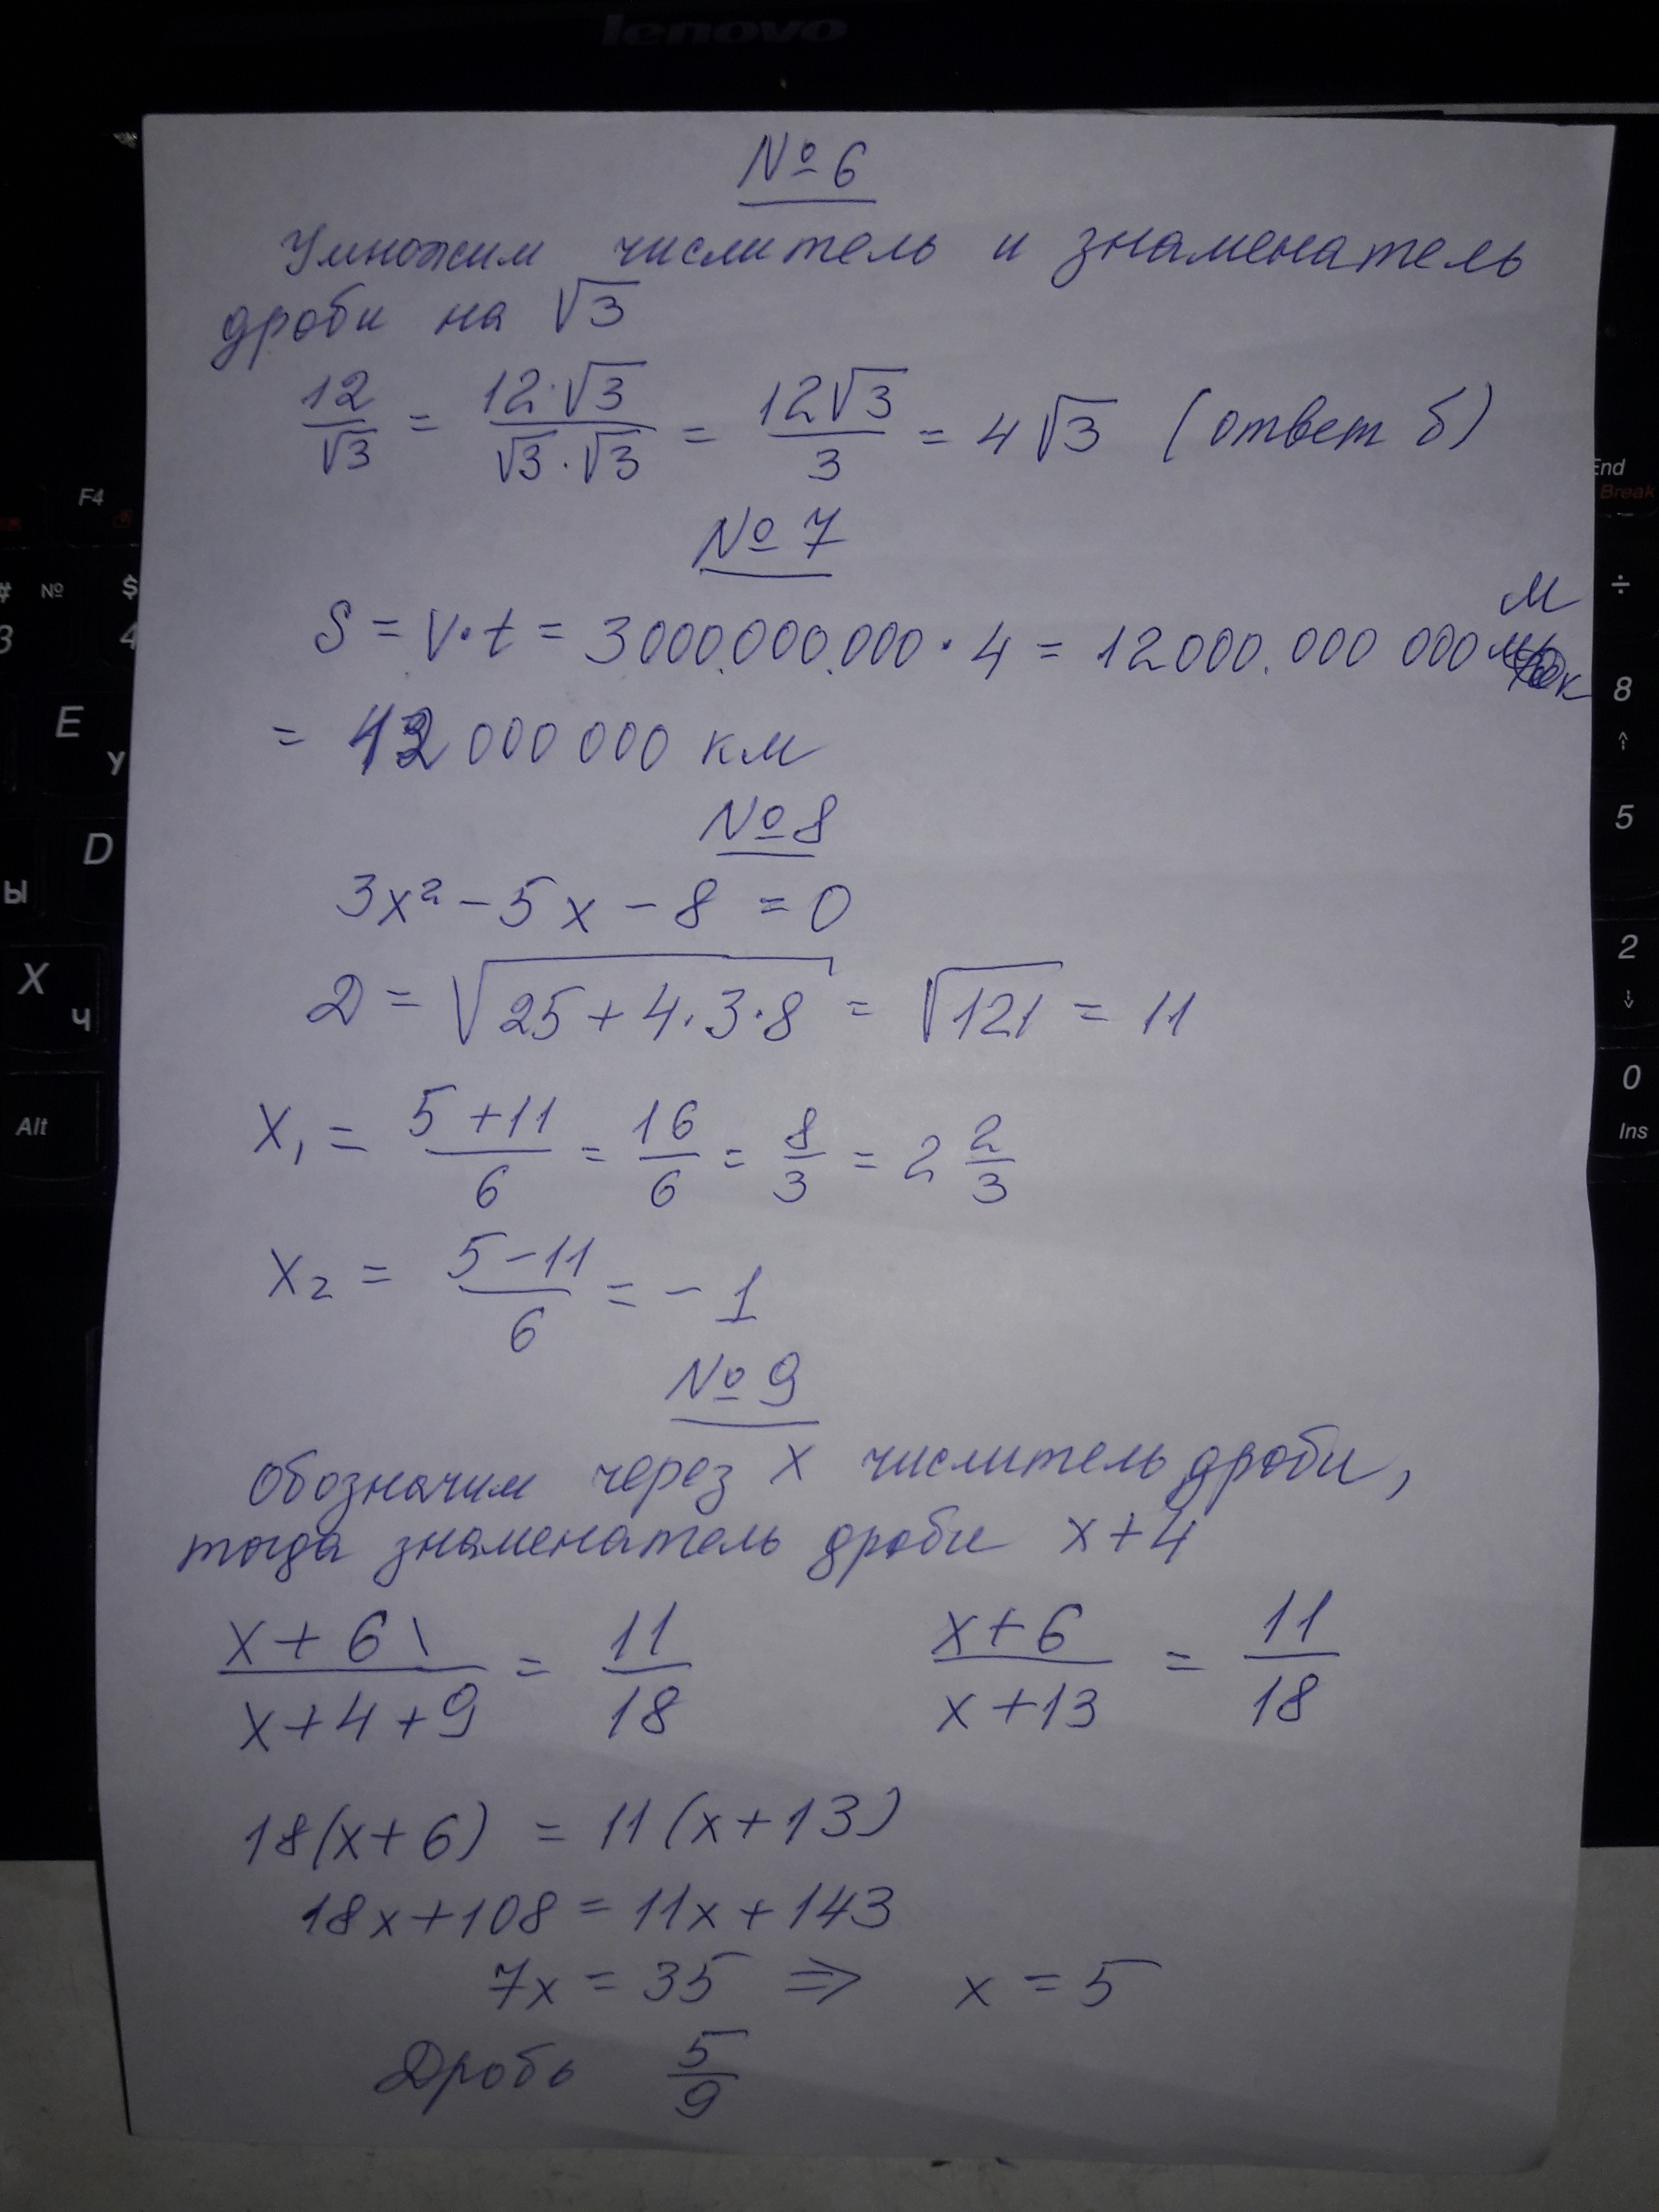 lenovo
№ 6
Умножим числитель и знаменатель
дроби на √3
12/√3 = 12·√3/√3·√3 = 12√3/3 = 4√3 (ответ б)
№ 7
S = V·t = 3000.000.000 · 4 = 12000.000 000 м
= 12 000 000 км
№ 8
3x² - 5x - 8 = 0
D = √25+4·3·8 = √121 = 11
x₁ = 5+11/6 = 16/6 = 8/3 = 2 2/3
x₂ = 5-11/6 = - 1
№ 9
Обозначим через x числитель дроби,
тогда знаменатель дроби x+4
x+6\/x+4+9 = 11/18 x+6/x+13 = 11/18
18(x+6) = 11(x+13)
18x+108 = 11x+143
7x = 35 ⇒ x = 5
Дробь 5/9
F4
# № $
3 4
E
У
D
Ы
X
Ч
Alt
End
Break
÷
8
5
2
0
Ins